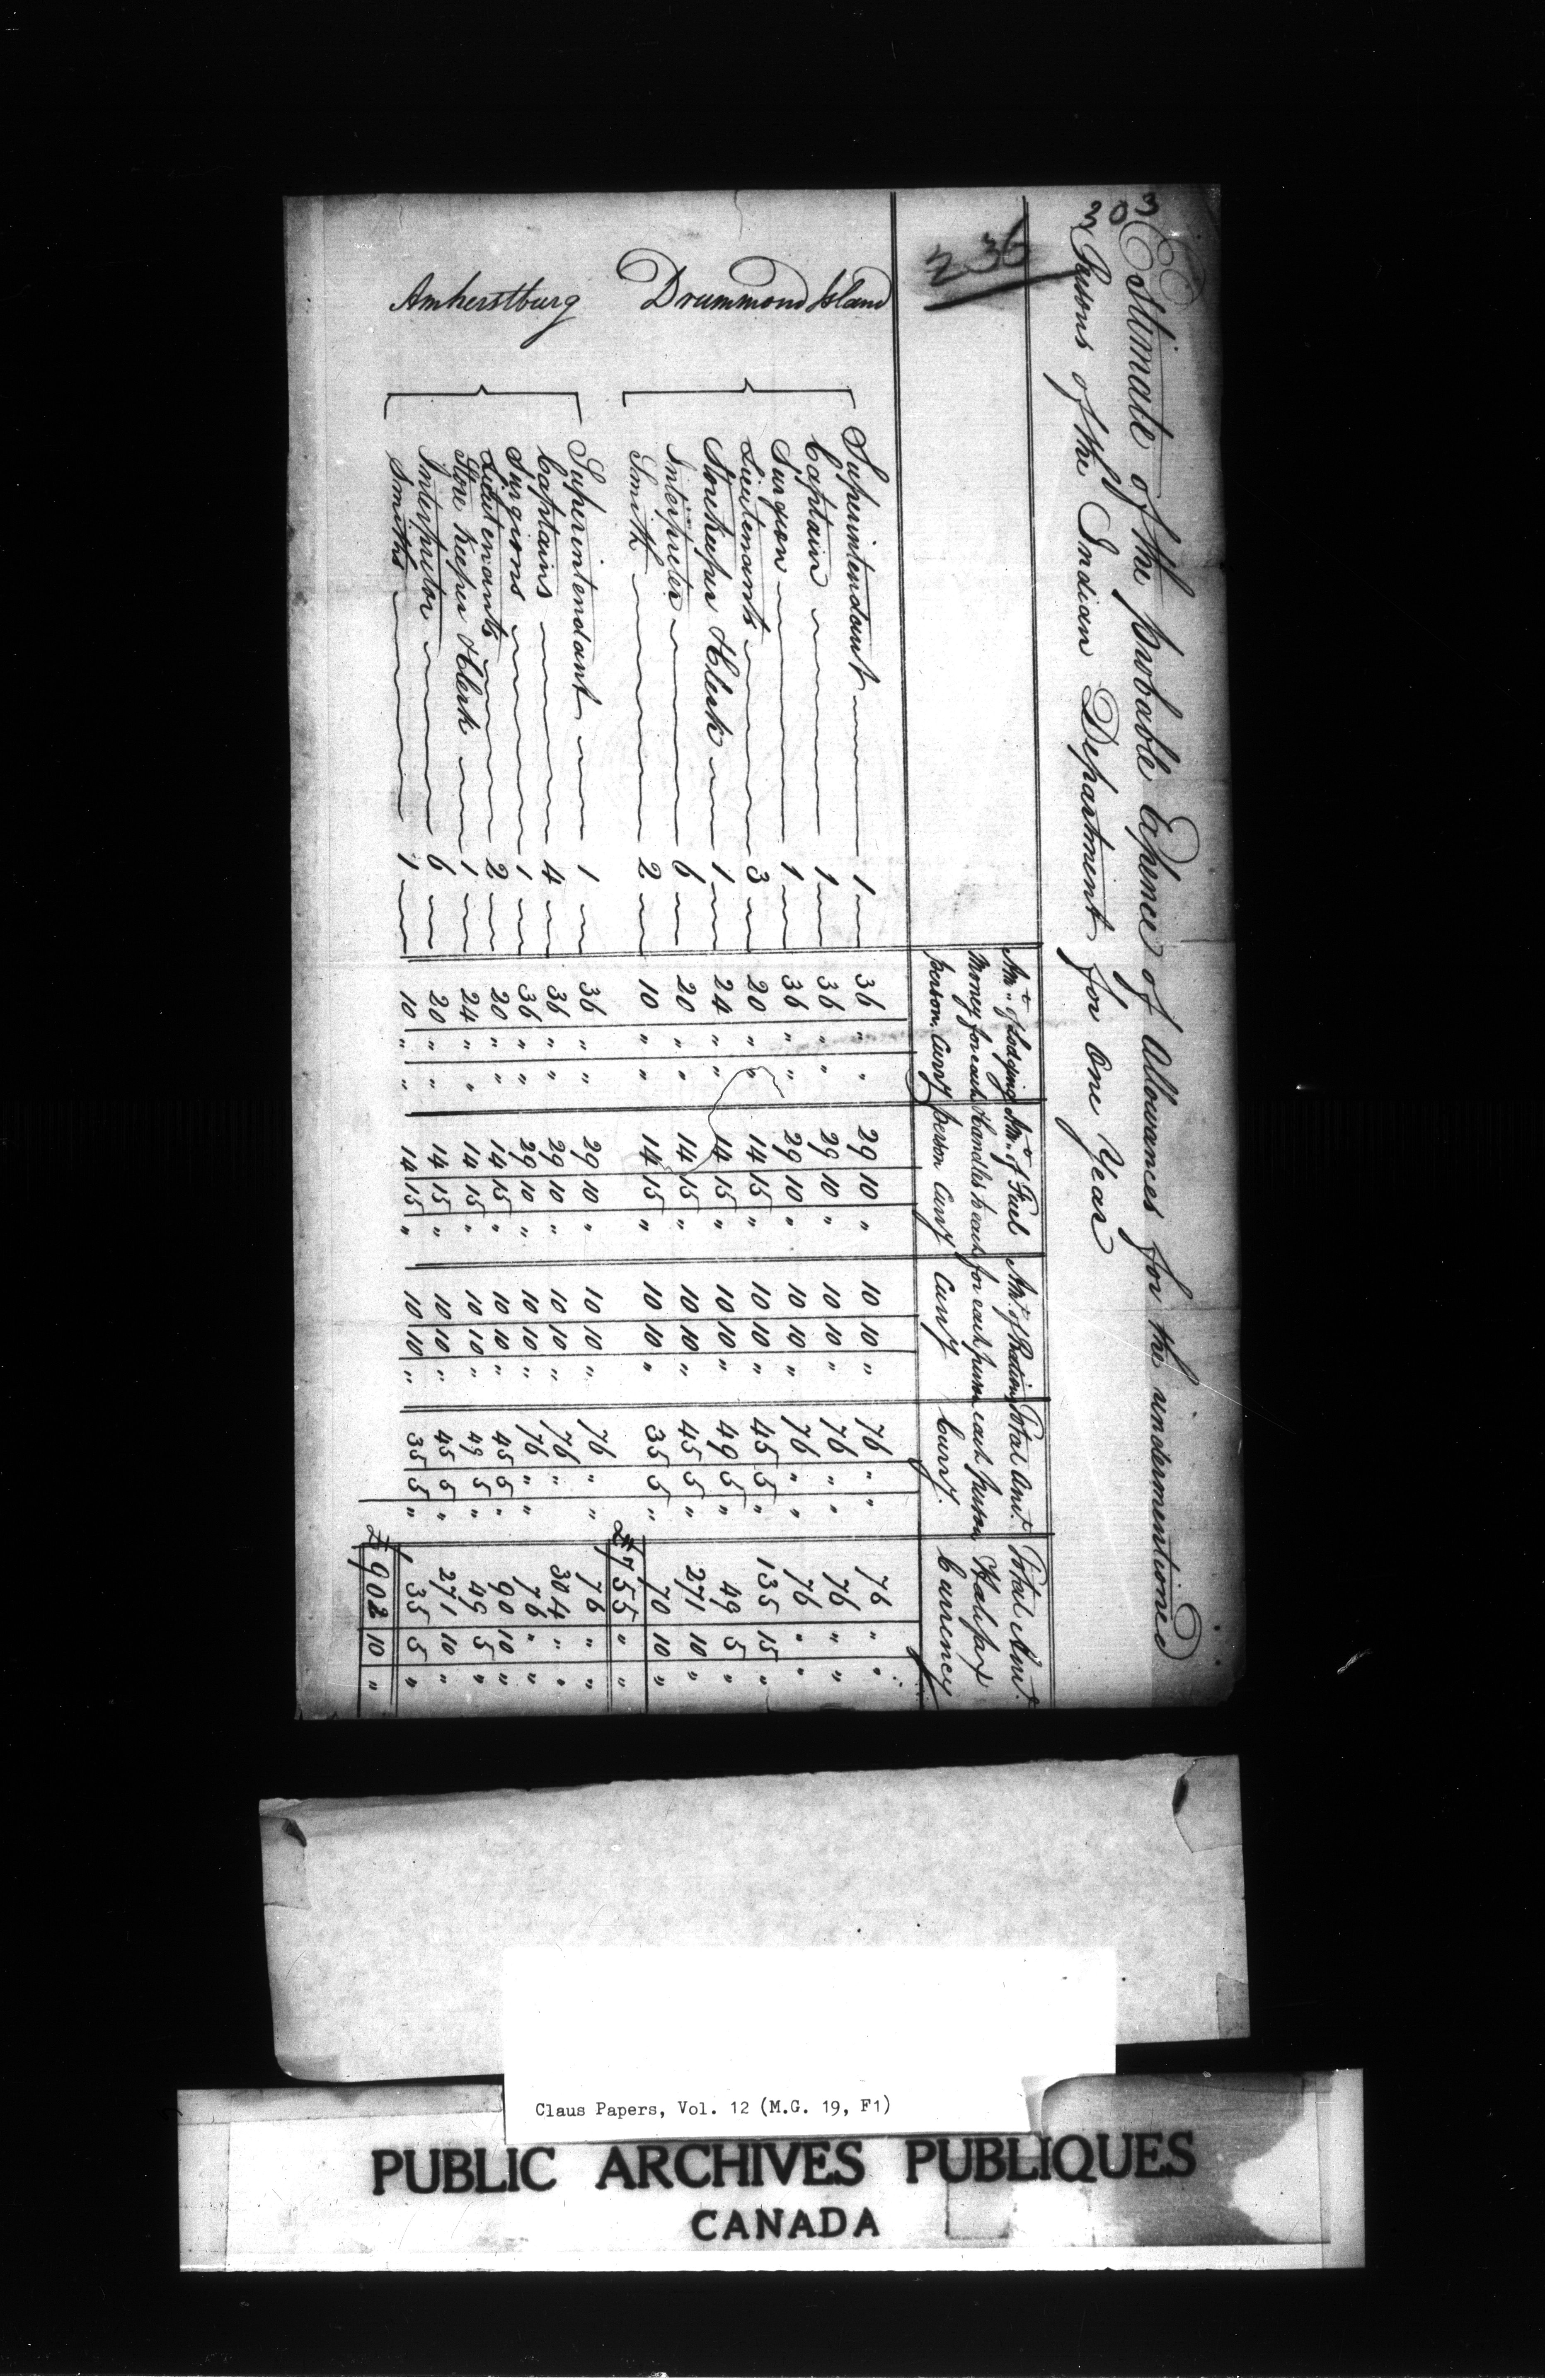 303
Estimate of the probable Expence of Allowances for the undermentioned
Persons of the Indian Department for One Year
236
Amt. of Lodging Money for each person. Curry
Amt. of Fuel & Candles to each person Curry
Amt. of Rations for each person Curry
Total Amt. each person Curry.
Total Amt. Halifax Currency
Drummond Island
Superintendant 1 36 " " 29 10 " 10 10 " 76 " " 76 " "
Captain 1 36 " " 29 10 " 10 10 " 76 " " 76 " "
Surgeon 1 36 " " 29 10 " 10 10 " 76 " " 76 " "
Lieutenants 3 20 " " 14 15 " 10 10 " 45 5 " 135 15 "
Storekeeper & Clerk 1 24 " " 14 15 " 10 10 " 49 5 " 49 5 "
Interpreter 6 20 " " 14 15 " 10 10 " 45 5 " 271 10 "
Smith 2 10 " " 14 15 " 10 10 " 35 5 " 70 10 "
£755 " "
Amherstburg
Superintendant 1 36 " " 29 10 " 10 10 " 76 " " 76 " "
Captains 4 36 " " 29 10 " 10 10 " 76 " " 304 " "
Surgeons 1 36 " " 29 10 " 10 10 " 76 " " 76 " "
Lieutenants 2 20 " " 14 15 " 10 10 " 45 5 " 90 10 "
Store Keeper & Clerk 1 24 " " 14 15 " 10 10 " 49 5 " 49 5 "
Interpretor 6 20 " " 14 15 " 10 10 " 45 5 " 271 10 "
Smiths 1 10 " " 14 15 " 10 10 " 35 5 " 35 5 "
£902 10 "
Claus Papers, Vol. 12 (M.G. 19, F1)
PUBLIC ARCHIVES PUBLIQUES
CANADA